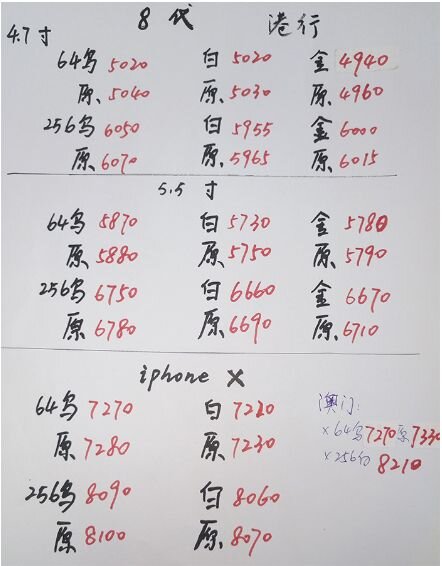 8代 港行
4.7寸
64乌 5020 白 5020 金 4940
原 5040 原 5030 原 4960
256乌 6050 白 5955 金 6000
原 6070 原 5965 原 6015
5.5寸
64乌 5870 白 5730 金 5780
原 5880 原 5750 原 5790
256乌 6750 白 6660 金 6670
原 6780 原 6690 原 6710
iphone X
64乌 7270 白 7220
原 7280 原 7230
256乌 8090 白 8060
原 8100 原 8070
澳门:
×64乌 7270 原 7330
×256白 8210